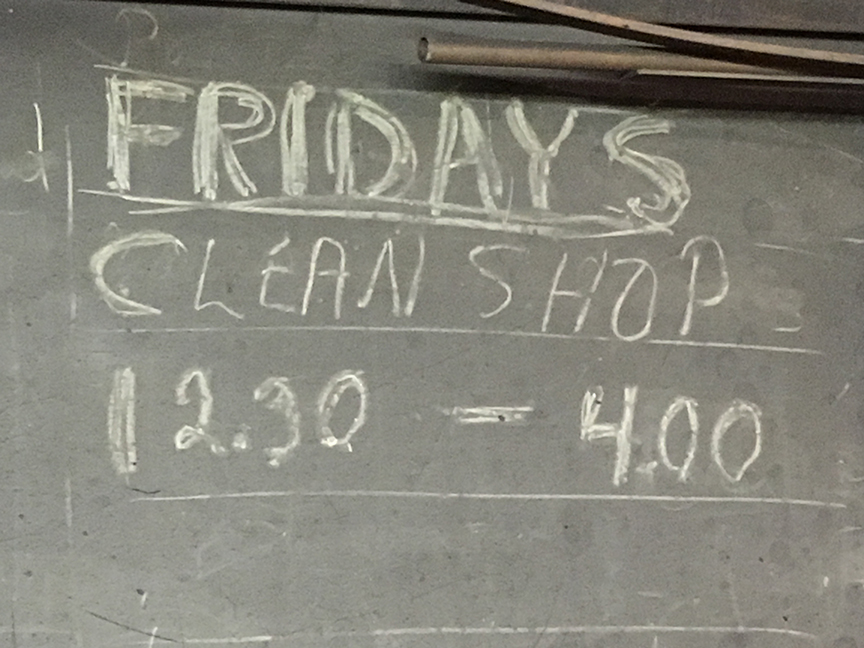 FRIDAYS
CLEAN SHOP
12.30 - 4.00